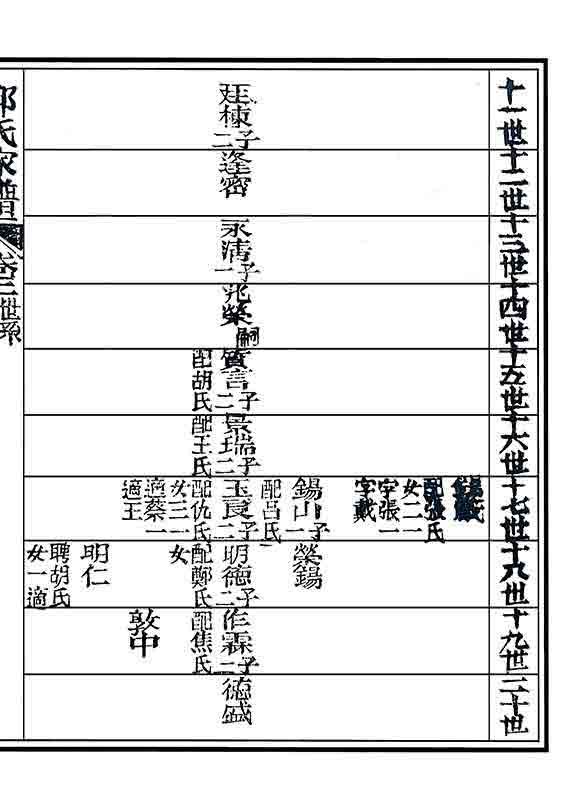 十一世
十二世
十三世
十四世
十五世
十六世
十七世
十八世
十九世
二十世
廷棟
二子
逢密
永清
一子
兆榮
嗣
質言
二子
配胡氏
景瑞
二子
配王氏
配張氏
女二一
字張一
字戴
錫山
一子
配呂氏
玉良
二子
配仇氏
女三一
適蔡一
適王
榮錫
明德
二子
配鄭氏
女
明仁
聘胡氏
女一適
作霖
二子
配焦氏
敦中
德盛
氏家譜
卷二
世系